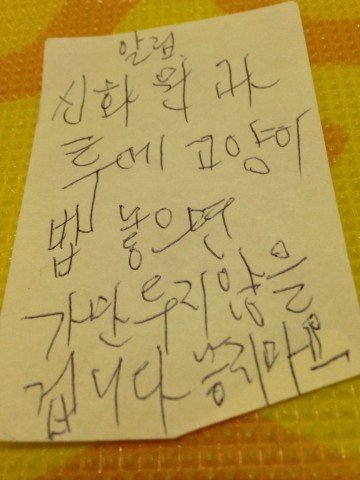 알림
신화
고양이
밥 놓으면
가만두지않을
겁니다 놓지마요